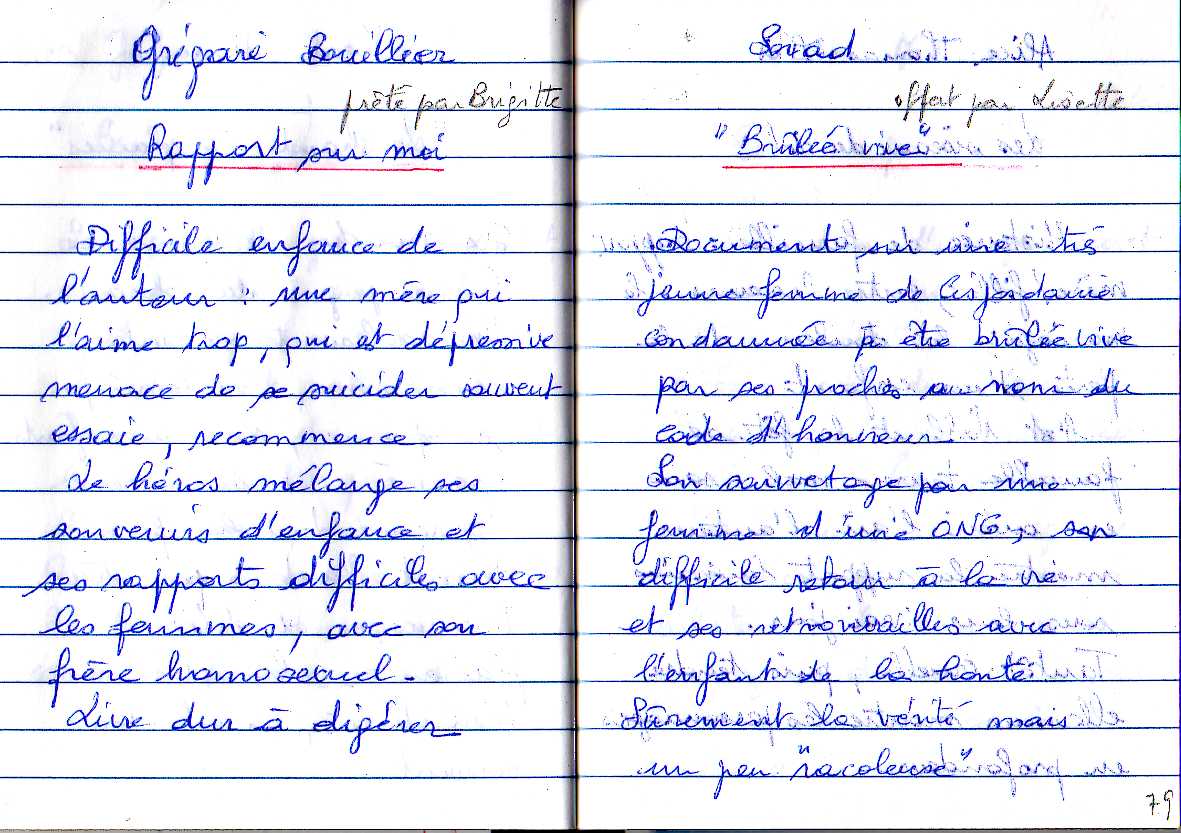 Grégoire Bouillier
prêté par Brigitte
Rapport sur moi
Difficile enfance de
l'auteur : une mère qui
l'aime trop, qui est dépressive
menace de se suicider souvent
essaie, recommence.
Le héros mélange ses
souvenirs d'enfance et
ses rapports difficiles avec
les femmes, avec son
frère homosexuel.
Livre dur à digérer
Souad
offert par Lisette
"Brûlée vive"
Document sur une très
jeune femme de Cisjordanie
condamnée à être brûlée vive
par ses proches au nom du
code d'honneur.
Son sauvetage par une
femme d'une ONG, son
difficile retour à la vie
et ses retrouvailles avec
l'enfant de la honte.
Sûrement la vérité mais
un peu "racoleuse"
79